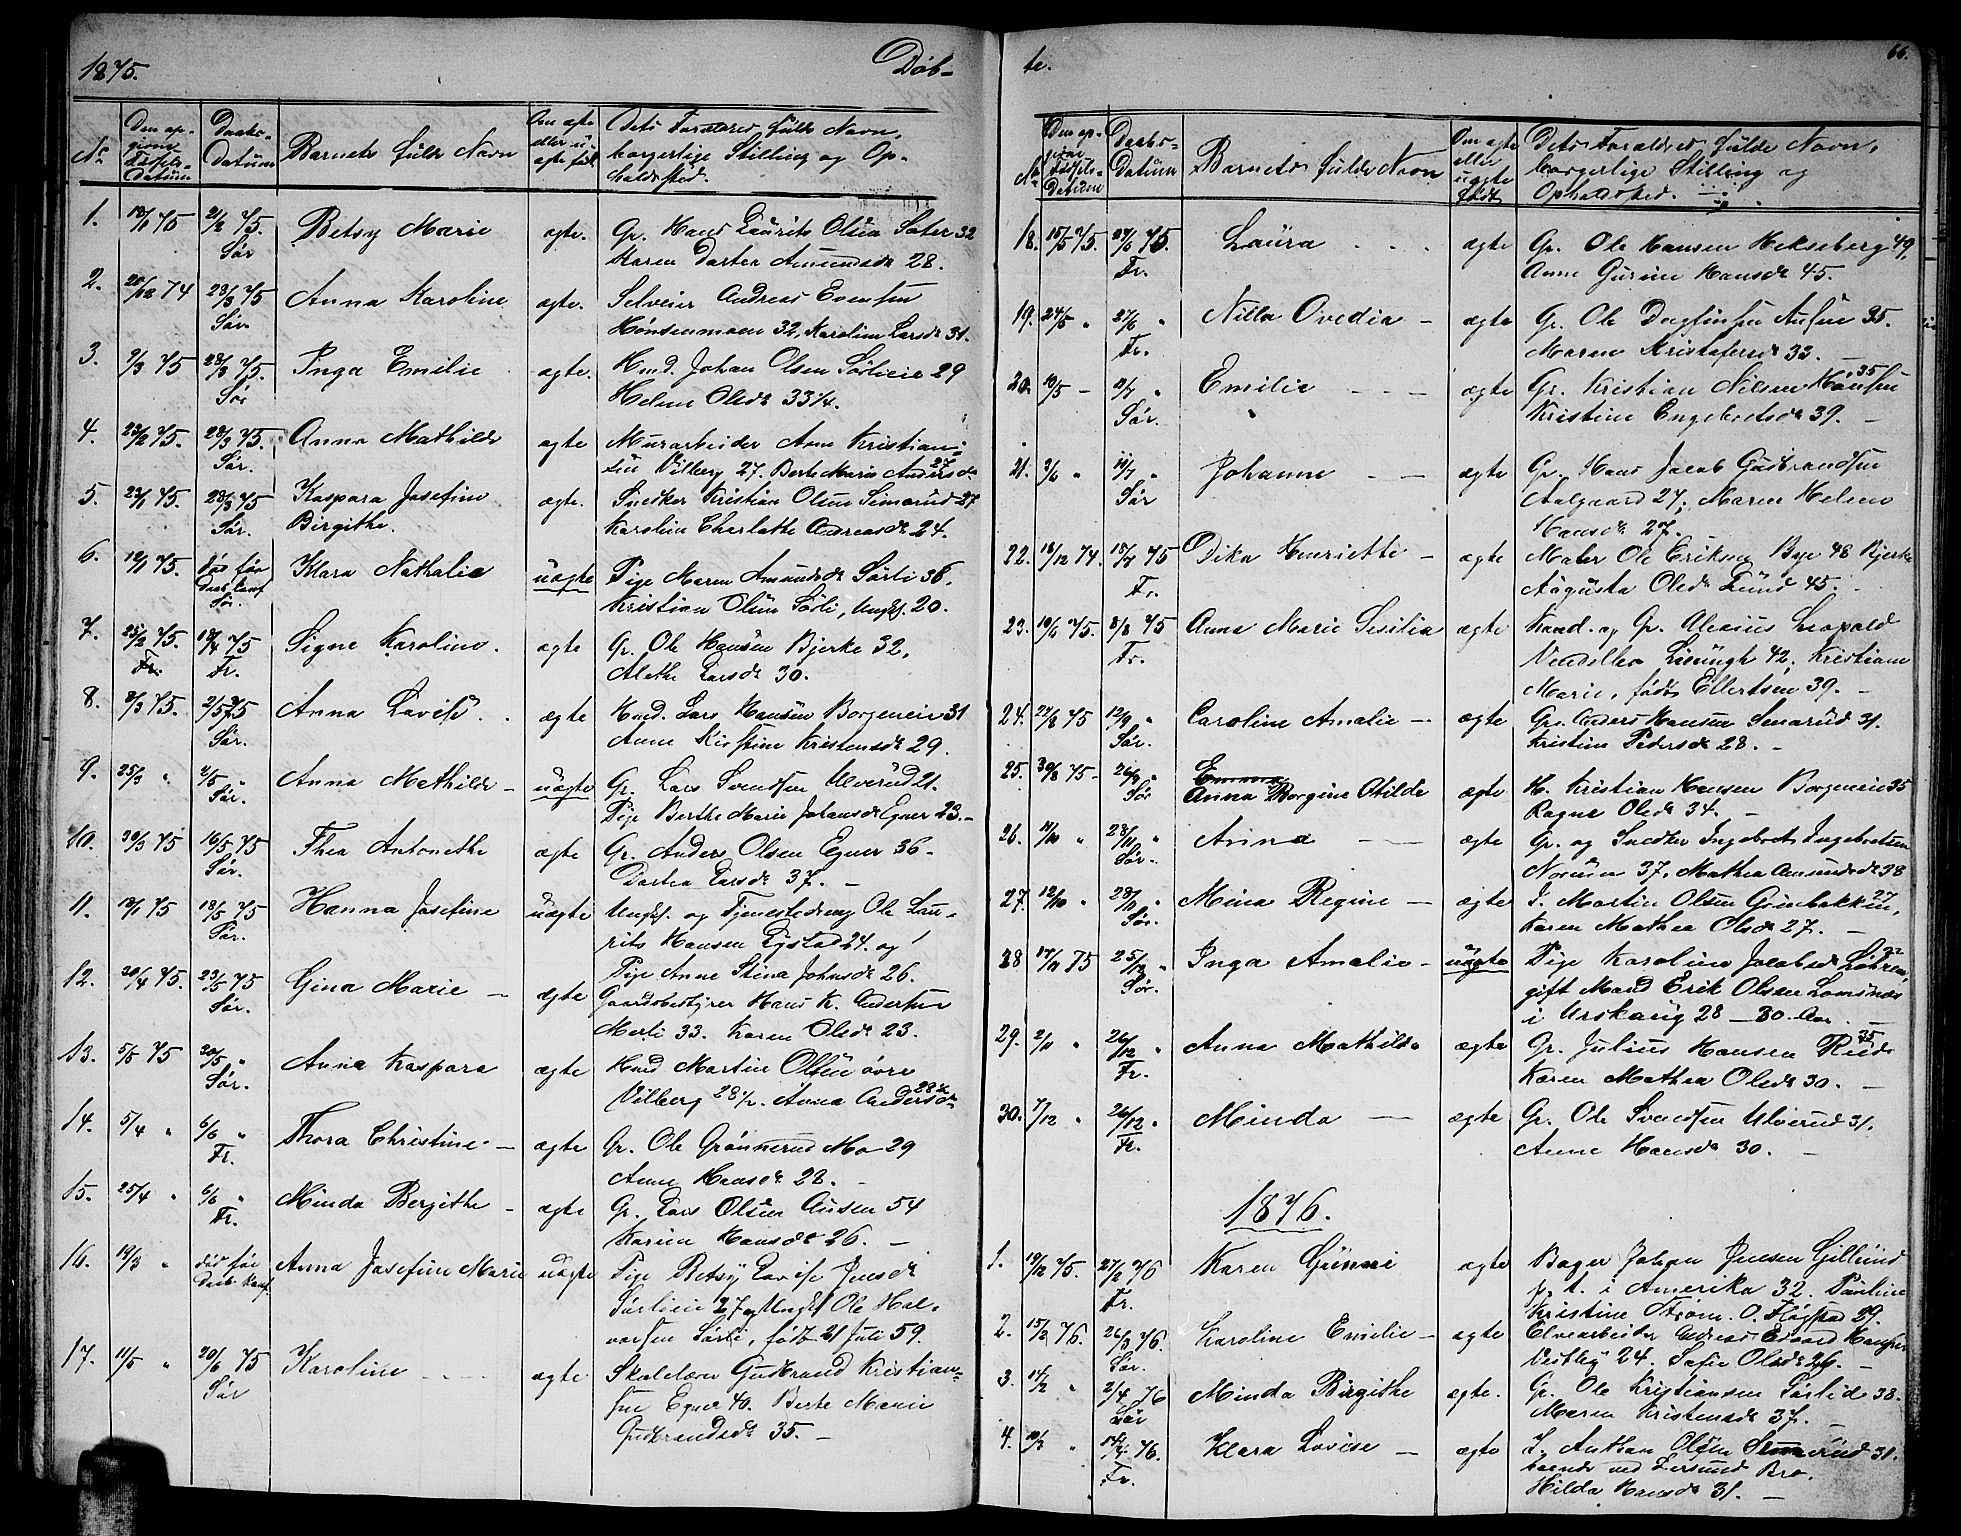 1875.
Døb-
No
Den op-
givne
Fødsels-
Datum
Daabs-
Datum
Barnets fulde Navn
Om ægte
eller u-
ægte født
Dets Forældres fulde Navn,
borgerlige Stilling og Op-
holdssted.
1. 75 21/2 75. Sør Betsy Marie ægte. Gr. Hans Laurits Olsen Sater 32
Karen Dortea Amundsdr 28.
2. 20/12 74 28/3 75 Sør. Anna Karoline ægte. Selveier Andreas Evensen
Hønsenmoen 32, Karoline Larsdr 31.
3. 9/3 75 28/3 75. Sør Inga Emilie ægte. Hmd. Johan Olsen Sørlieie 29
Helene Olsdr 33 1/4.
4. 23/2 75. 28/3 75. Sør. Anna Mathilde ægte Murarbeider Arne Kristian-
sen Vilberg 27. Berte Marie Andersdr 27
5. 23/1 75. 28/3 75 Sør. Kaspara Josefine ægte. Snedker Kristian Olsen Simarud 27
Birgithe. Karoline Charlotte Andreasdr 24.
6. 12/1 75. Død før Daab Sør. Klara Nathalie uægte Pige Maren Amundsdr Sørli 36,
Kristian Olsen Sørli, Ungk. 20.
7. 25/2 75. Fr. 18/4 75 Fr. Signe Karoline. ægte Gr. Ole Hansen Bjerke 32,
Alethe Larsdr 30.
8. 75. 2/5 75 Sør. Anna Lovise ægte Hmd. Lars Hansen Borgeneie 31
Anne Kirstine Kristensdr 29.
9. 25/3 " 2/5 " Sør. Anna Mathilde - uægte Gr. Lars Svendsen Ulverud 21.
Pige Berthe Marie Johansdr Egner 23. -
10. 30/3 75 16/5 75 Sør. Thea Antonethe ægte Gr. Anders Olsen Egner 36 -
Dortea Larsdr 37. -
11. 75 18/5 75 Sør. Hanna Josefine uægte Ungk. og Tjenestedreng Ole Lau-
rits Hansen Tystad 24. og
Pige Anne Stina Johnsdr 26.
12. 20/4 75. 23/5 75 Sør. Gina Marie - ægte Gaardsbestyrer Hans K. Andersen
Merli 33. Karen Olsdr 23.
13. 5/5 75 30/5 " Sør. Anna Kaspara ægte Hmd Martin Olsen øvre
Vilberg 28 1/2. Anna Andersdr 28 1/2
14. 5/4 " 6/6 " Fr. Thora Christine - ægte Gr. Ole Grønnerud Mo 29
Anne Hansdr 28. -
15. 25/4 " 6/6 " Fr. Minda Bergithe - ægte Gr. Lars Olsen Ausen 54
Karen Hansdr 26. -
16. 19/3 " død før Daab Anna Josefine Marie uægte Pige Betsy Lovise Jensdr
Sørlieie 27 og Ungk. Ole Hal-
vorsen Sørli, født 21 Juli 59.
17. 11/5 " 20/6 75 Sør Karoline ægte Skolelærer Gudbrand Kristian-
sen Egner 40. Berte Marie
Gudbrandsdr 35. -
te.
66.
No
Den op-
givne
Fødsels-
Datum
Daabs-
Datum
Barnets fulde Navn
Om ægte
eller
uægte
født
Dets Forældres fulde Navn,
borgerlige Stilling og
Opholdssted.
18. 15/5 75. 27/6 75. Fr. Laura ægte Gr. Ole Hansen Hekseberg 49,
Anne Gurine Hansdr 45.
19. 24/5 " 27/6 " Fr. Nilla Ovedia - ægte Gr. Ole Dagfinsen Ausen 35.
Maren Kristofersdr 33. -
20. 10/5 - " Sør. Emilie ægte Gr. Kristian Nilsen Hansen 35
Kristine Engebretsdr 39. -
21. 3/6 " 11/7 " Sør Johanne - ægte Gr. Hans Jacob Gudbrandsen
Aalgaard 27, Maren Helene
Hansdr 27.
22. 18/12 74. 18/7 75 Fr. Dika Henriette - ægte Maler Ole Eriksen Bye 48 Bjerke
Augusta Olsdr Lund 45.
23. 19/6 75. 8/8 75 Fr. Anna Marie Sesilia ægte Kand. og Gr. Alexius Leopold
Lieungh 42, Kristiane
Marie, født Ellertsen 39. -
24. 22/8 75 12/9 " Sør. Caroline Amalie - ægte Gr. Anders Hansen Smarud 31.
Kristine Pedersdr 28. -
25. 30/8 75 - 26/9 " Sør Emma
Anna Borgine Otilde ægte H. Kristian Hansen Borgeneie 35
Ragne Olsdr 34. -
26. 11/10 " 28/11 " Sør. Anna - ægte Gr. og Snedker Ingebret Ingebretsen
Nordeen 37, Mathea Amundsdr 38
27. 12/10 " 28/11 " Sør. Mina Regine - ægte I. Martin Olsen Grinbakken 27,
Karen Mathea Olsdr 27. -
28 17/11 75 25/12 " Sør. Inga Amalie - uægte Pige Karoline Jacobsdr 22
gift Mand Erik Olsen Lomsnæs
i Urskaug 28 - 30 Aar -
29. 2/11 " 26/12 " Fr. Anna Mathilde ægte Gr. Julius Hansen Rud 35
Karen Mathea Olsdr 30. -
30. 7/12 " 26/12 Fr. Minda - ægte Gr. Ole Svendsen Ulverud 31.
Anne Hansdr 30. -
1876.
1. 19/12 75. 27/2 76 Fr. Karen Gunni ægte Bager Johan Jensen Gillund
p. t. i Amerika 32. Pauline
Kristine Strøm. O. Flogstad 29.
2. 15/2 76. 26/3 76. Sør. Karoline Emilie - ægte Elvearbeider Andreas Edvard Hansen
Vestby 24. Sofie Olsdr 26. -
3. 14/2 " 2/4 76 Sør Minda Birgithe ægte. Gr. Ole Kristiansen Sørlie 38.
Maren Kristensdr 37. -
4. 10/3 " 14/4 76. Fr. Klara Lovise - ægte I. Anthon Olsen Smarud 31.
boende ved Fersund Bro.
Hilda Hansdr 31. -